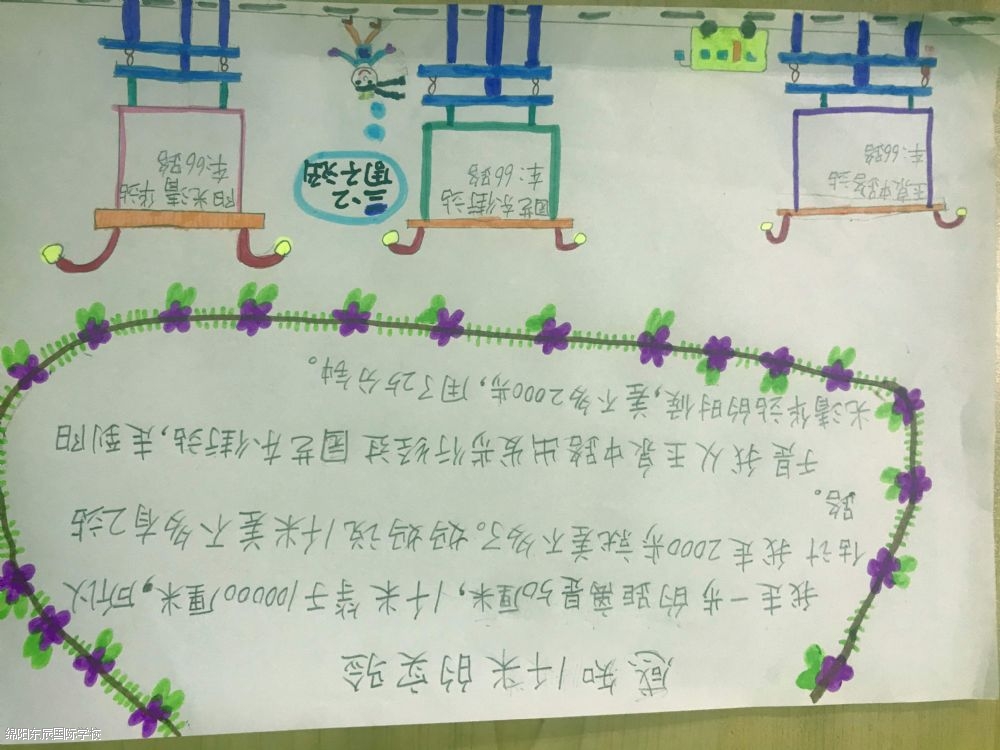 感知1千米的实验
我走一步的距离是50厘米,1千米等于100000厘米,所以
估计我走2000步就差不多了。妈妈说1千米差不多有2站
路。
于是我从玉泉中路出发步行经过园艺东街站,走到阳
光清华站的时候,差不多2000步,用了25分钟。
玉泉中路站
车:66路
园艺东街站
车:66路
阳光清华站
车:66路
绵阳东辰国际学校